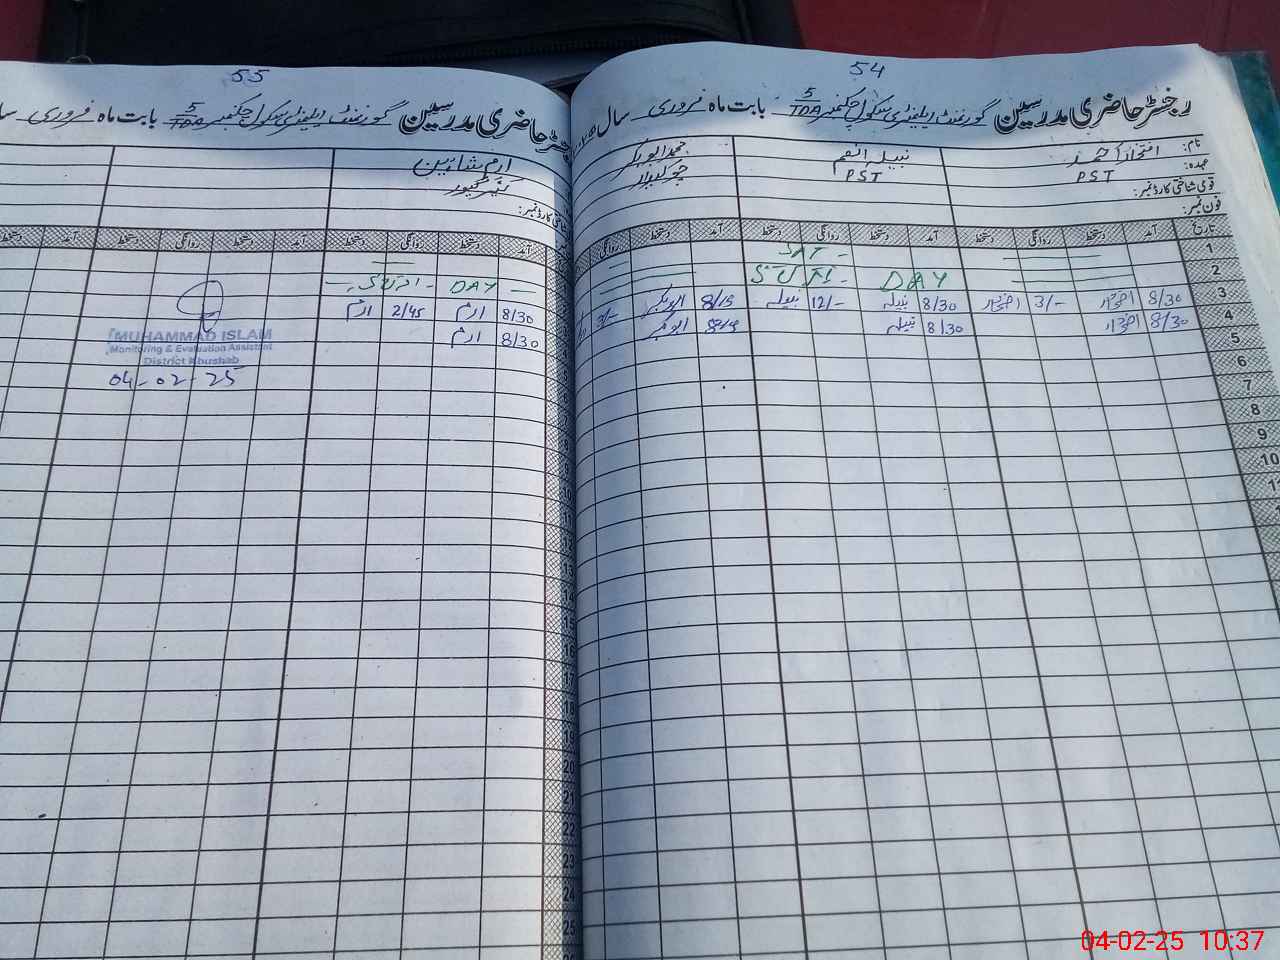 54
رجسٹر حاضری مدرسین گورنمنٹ ایلیمنٹری سکول چکنمبر 5/TDA بابت ماہ فروری سال
نام: افتخار احمد نبیلہ انعم محمد ابوبکر
عہدہ: PST PST چوکیدار
قومی شناختی کارڈ نمبر:
فون نمبر:
تاریخ آمد دستخط روانگی دستخط آمد دستخط روانگی دستخط آمد دستخط روانگی
1 SAT -
2 DAY
3 8/30 افتخار 3/- افتخار 8/30 نبیلہ 12/- نبیلہ 8/15 ابوبکر 3/-
4 8/30 افتخار 8/30 نبیلہ ابوبکر
5
6
7
8
9
10
11
55
رجسٹر حاضری مدرسین گورنمنٹ ایلیمنٹری سکول چکنمبر 5/TDA بابت ماہ فروری
ارم شاہین
کیئر گیور
آمد دستخط روانگی دستخط آمد دستخط روانگی دستخط آمد دستخط
DAY
8/30 ارم 2/45 ارم
8/30 ارم
MUHAMMAD ISLAM
Monitoring & Evaluation Assistant
District Khushab
04-02-25
13
14
15
16
17
18
19
20
21
22
23
24
25
04-02-25 10:37